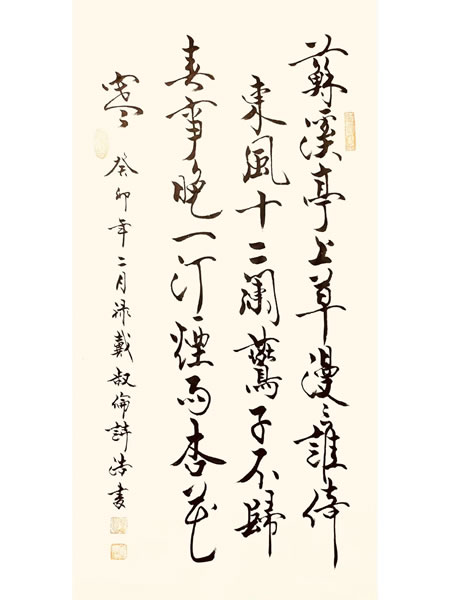 蘇溪亭上草漫々誰倚
東風十二闌鷰子不歸
春事晚一汀煙雨杏花
寒
癸卯年二月录戴叔倫詩浩書